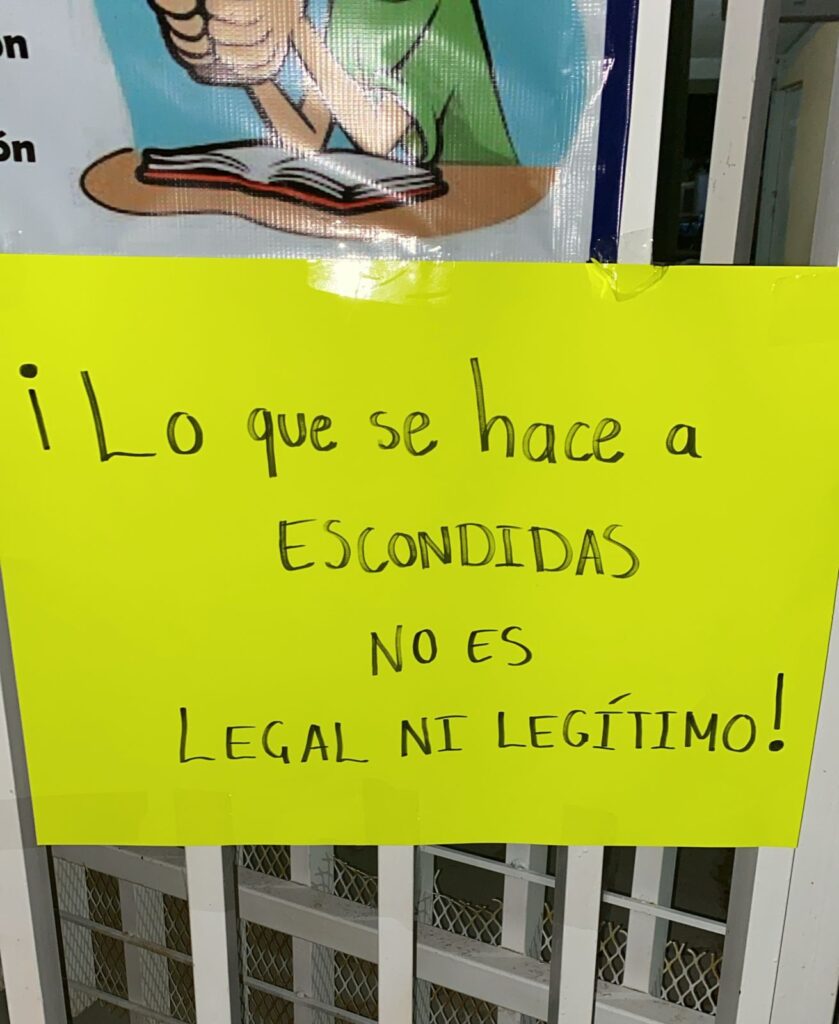 ón
ón
¡Lo que se hace a
ESCONDIDAS
NO ES
LEGAL NI LEGÍTIMO!